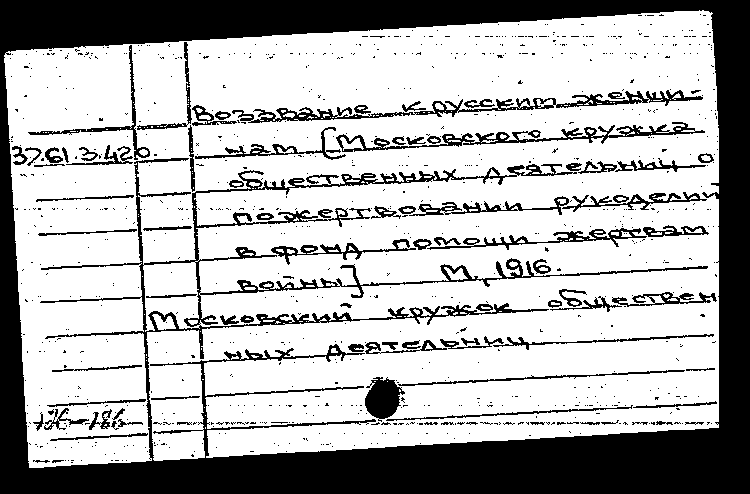 Воззвание к русским женщи-
37.61.3.420. нам [Московского кружка
общественных деятельниц о
пожертвовании рукоделий
в фонд помощи жертвам
войны]. М., 1916.
Московский кружок обществен
ных деятельниц
126-186